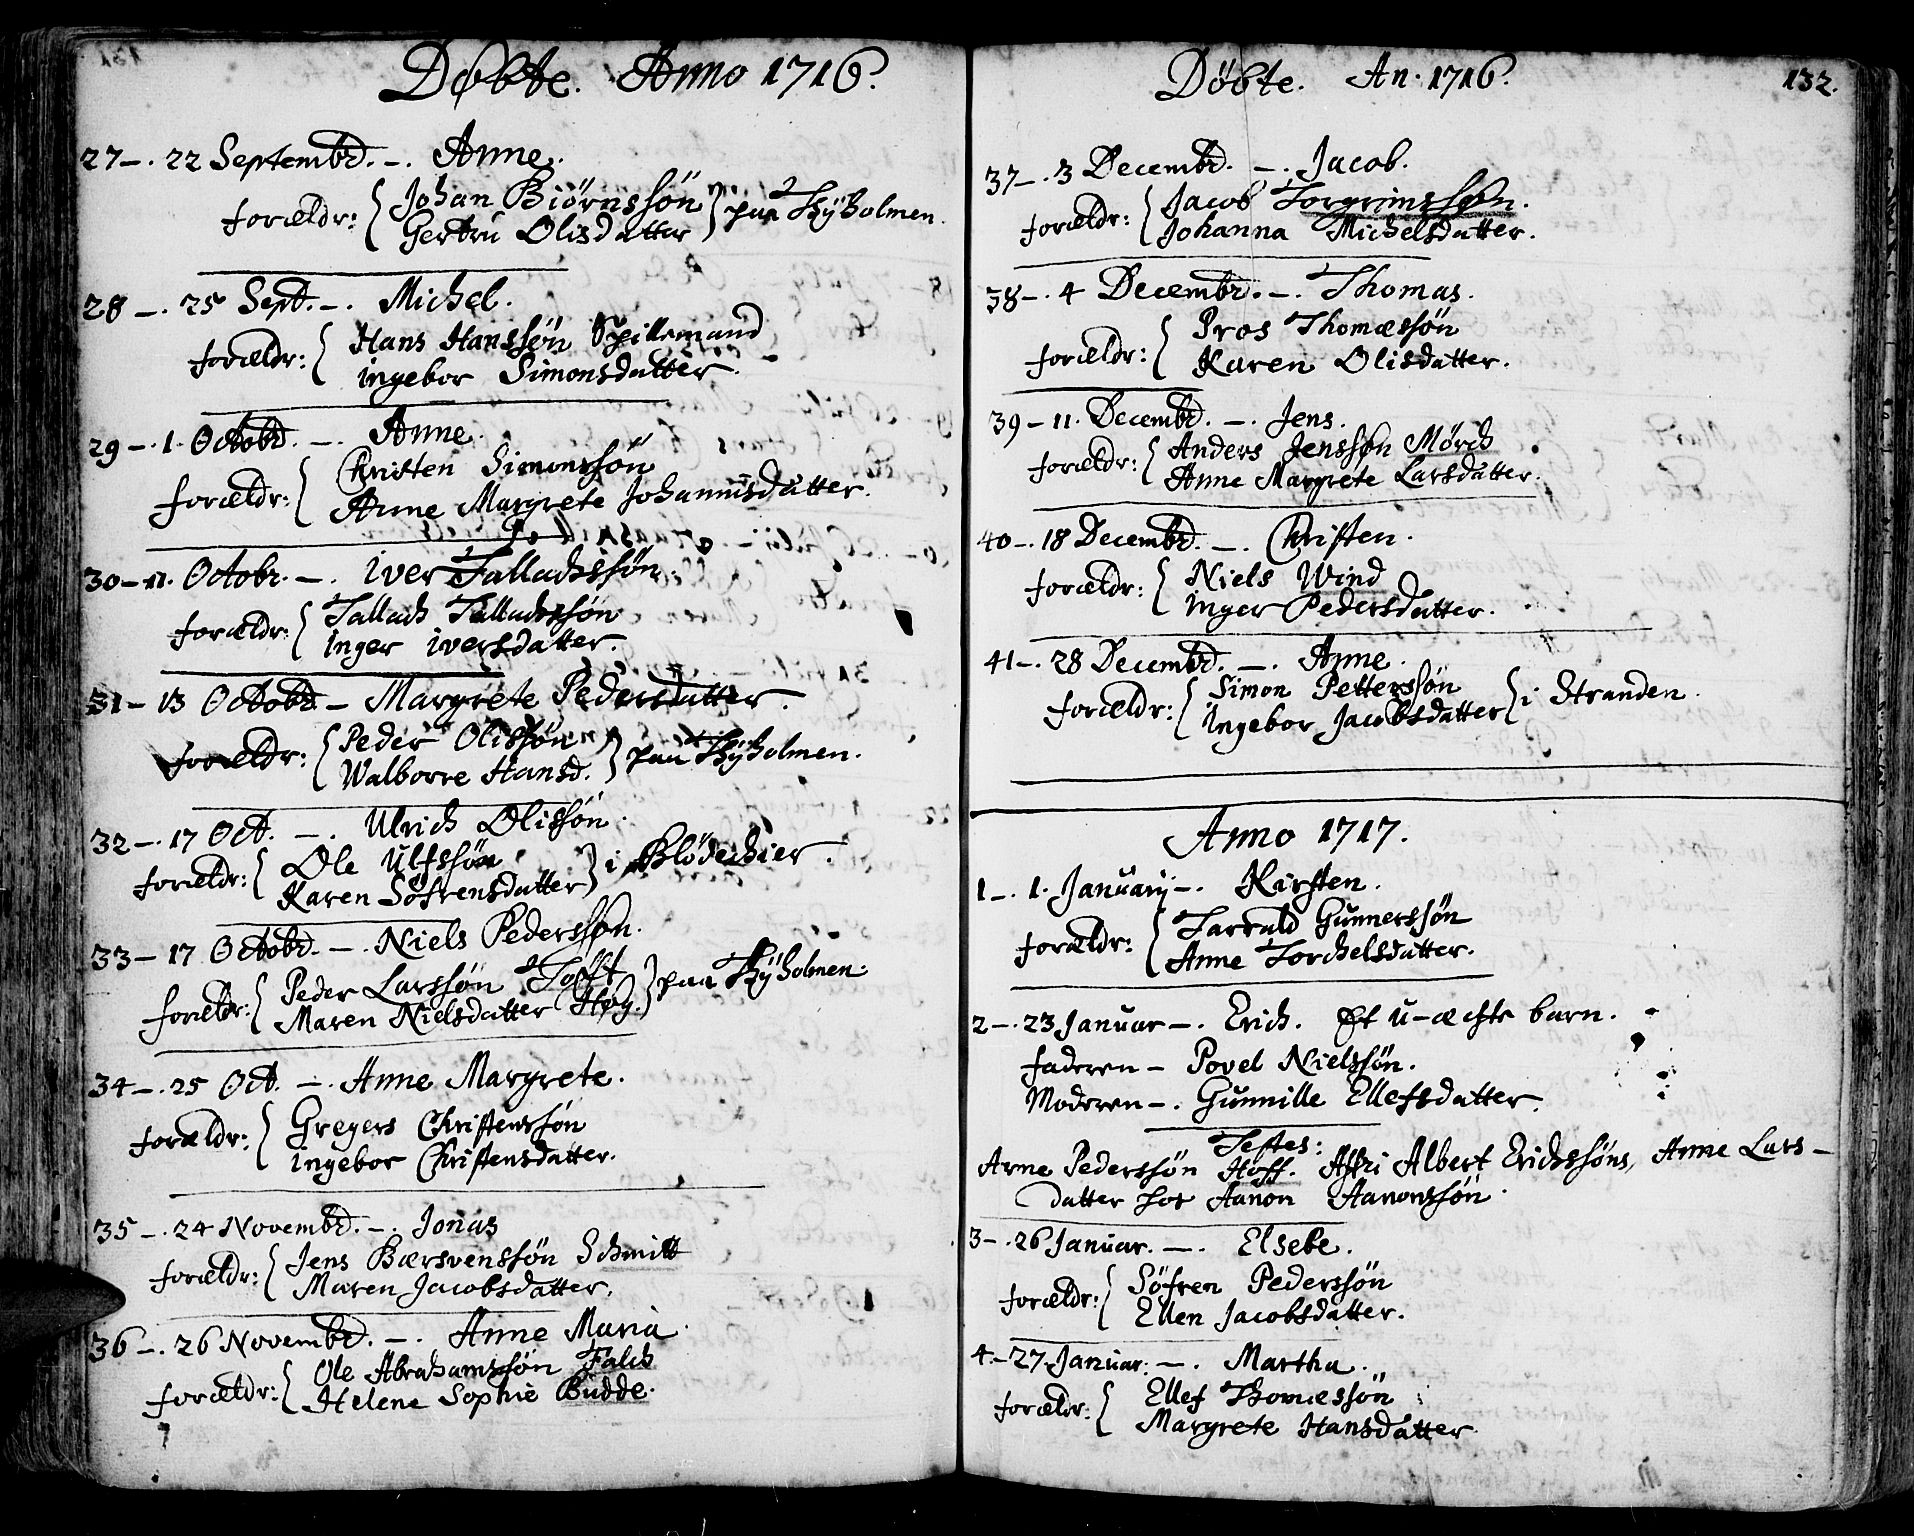 Døbte. Anno 1716.
27 –. 22 Septembr. –. Anne.
forældr: { Johan Biørnssøn
Gertru Olisdatter } paa Thÿholmen.
28 –. 25 Sept. –. Michel.
forældr: { Hans Hanssøn Spillemand
ingebor Simonsdatter.
29 –. 1. Octobr. –. Anne.
forældr: { Christen Simonssøn
Anne Margrete Johannisdatter.
30 – 11. Octobr. –. iver Tallachssøn.
forældr: { Tallach Tallachssøn
inger iversdatter.
31 – 13 Octobr. – Margrete Pedersdatter.
forældr: { Peder Olissøn
Walborre Hansd. } paa Thÿholmen.
32 –. 17 Oct. –. Ulrich Olissøn.
forældr: { Ole Ulfssøn
Karen Søfrensdatter } i Blødechier.
33 – 17 Octobr. –. Niels Pederssøn.
forældr: { Peder Larssøn Tofft
Maren Nielsdatter Høy. } paa Thÿholmen.
34 –. 25 Oct. –. Anne Margrete.
forældr: { Gregers Christenssøn
ingebor Christensdatter.
35 –. 24 Novembr. –. Jonas
forældr: { Jens Bærsvenssøn Schmitt
Maren Jacobsdatter.
36 –. 26 Novembr. –. Anne Maria.
forældr: { Ole Abrahamssøn Falch
Helene Sophie Budde.
Døbte. An. 1716. 132.
37 –. 3 Decembr. –. Jacob.
forældr: { Jacob Torgrimssøn.
Johanna Michelsdatter.
38 –. 4 Decembr. –. Thomas.
forældr: { Pros Thomæssøn
Karen Olisdatter.
39 – 11. Decembr. –. Jens.
forældr: { Anders Jenssøn Mørch
Anne Margrete Larsdatter.
40 –. 18 Decembr. –. Christen.
forældr: { Niels Wind
inger Pedersdatter.
41 –. 28 Decembr. –. Anne.
forældr: { Simon Petterssøn
Ingebor Jacobsdatter } i Stranden.
Anno 1717.
1 –. 1. Januarij –. Kirsten.
forældr: { Tarrald Gunnerssøn
Anne Torchelsdatter.
2 –. 23 Januar –. Erich. Et u-æchte barn.
faderen – Povel Nielssøn.
Moderen –. Gunnille Ellefsdatter.
Testes:
Arme Pederssøn Hoff. Assri Albert Erichssøns, Anne Lars –
datter hos Aanon Aanonssøn.
3 –. 26 Januar. –. Elsebe.
forældr: { Søfren Pederssøn
Ellen Jacobsdatter.
4. – 27 Januar: –. Martha.
forældr: { Ellef Thomæssøn
Margrete Hansdatter.